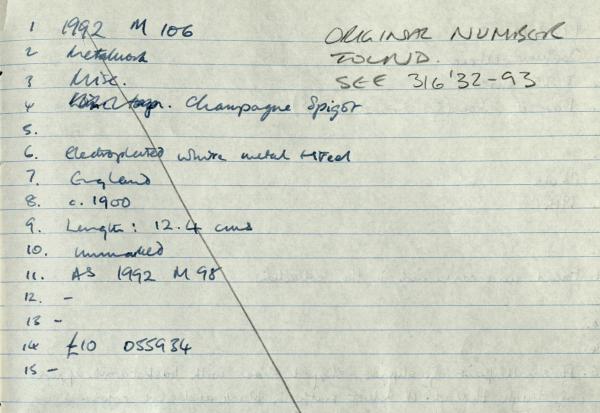 1 1992 M 106
ORIGINAL NUMBER
FOUND.
SEE 316'32-93
2 Metalwork
3 Misc.
4 Champagne Spigot
5.
6. Electroplated white metal + steel
7. England
8. c. 1900
9. Length: 12.4 cms
10. unmarked
11. AS 1992 M 98
12. -
13 -
14 £10 055934
15 -